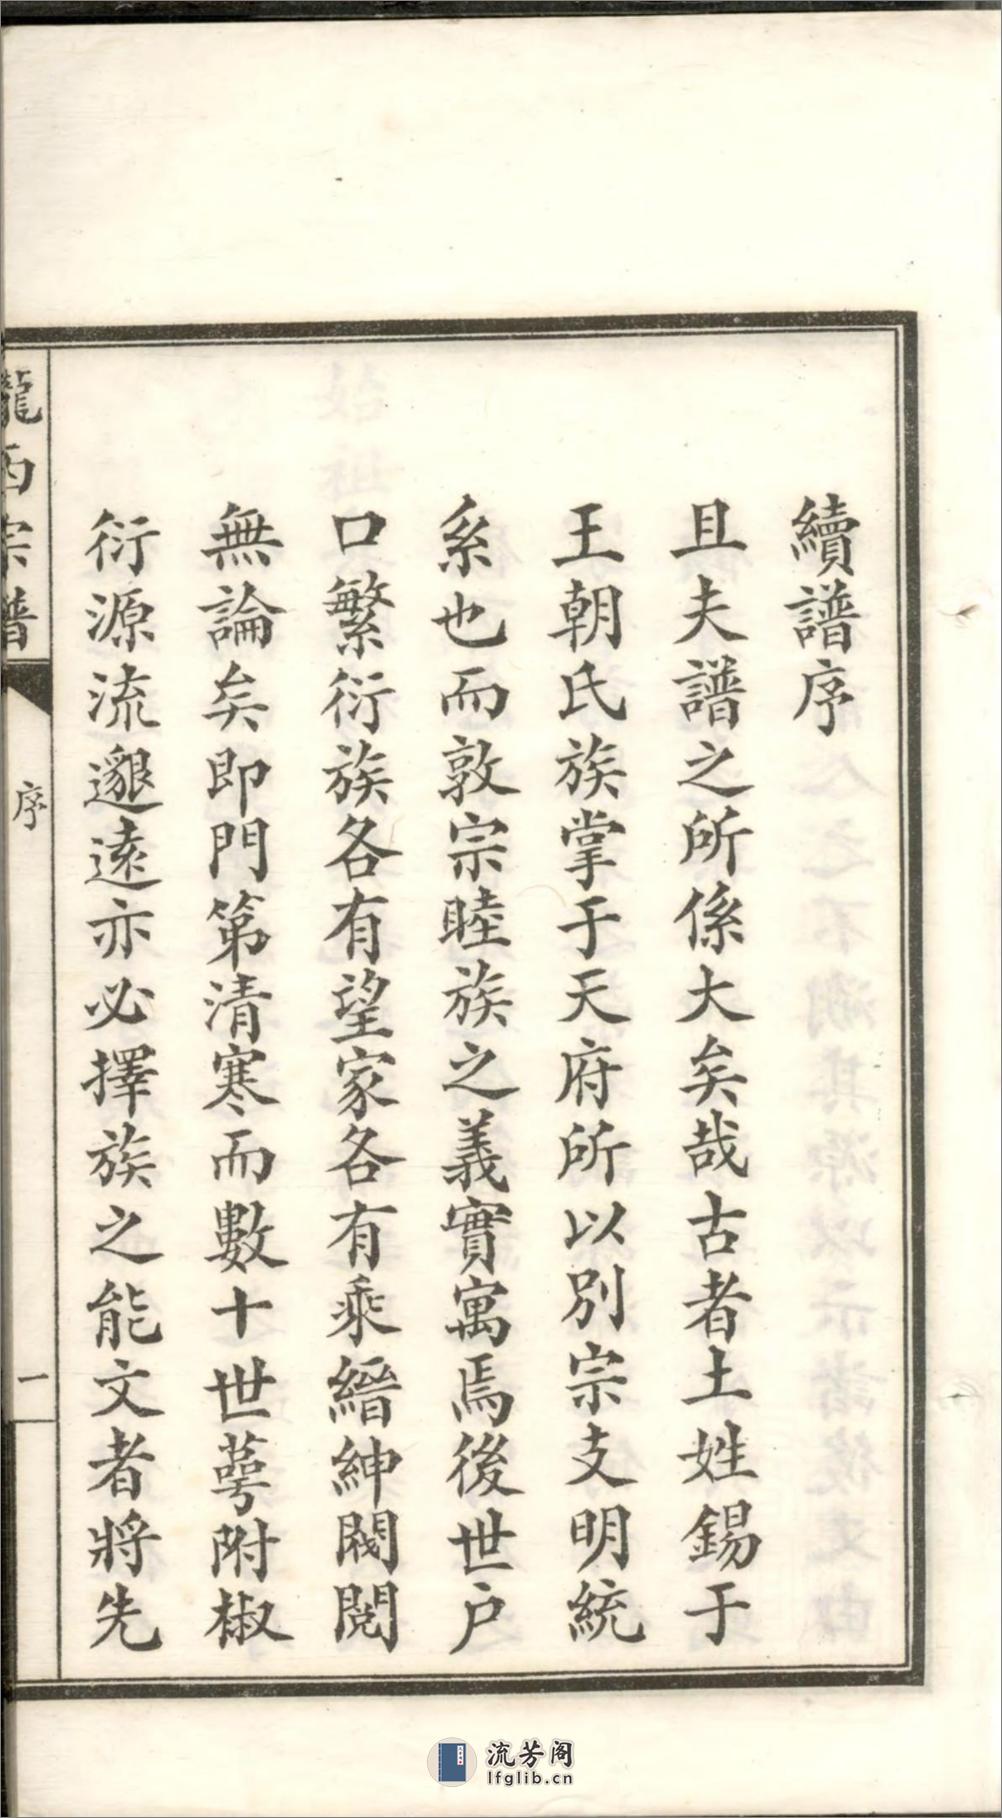 續譜序
且夫譜之所係大矣哉古者土姓錫于
王朝氏族掌于天府所以別宗支明統
系也而敦宗睦族之義實寓焉後世戶
口繁衍族各有望家各有乘縉紳閥閱
無論矣即門第清寒而數十世萼附椒
衍源流邈遠亦必擇族之能文者將先
隴西宗譜
序
一
流芳阁
lfglib.cn